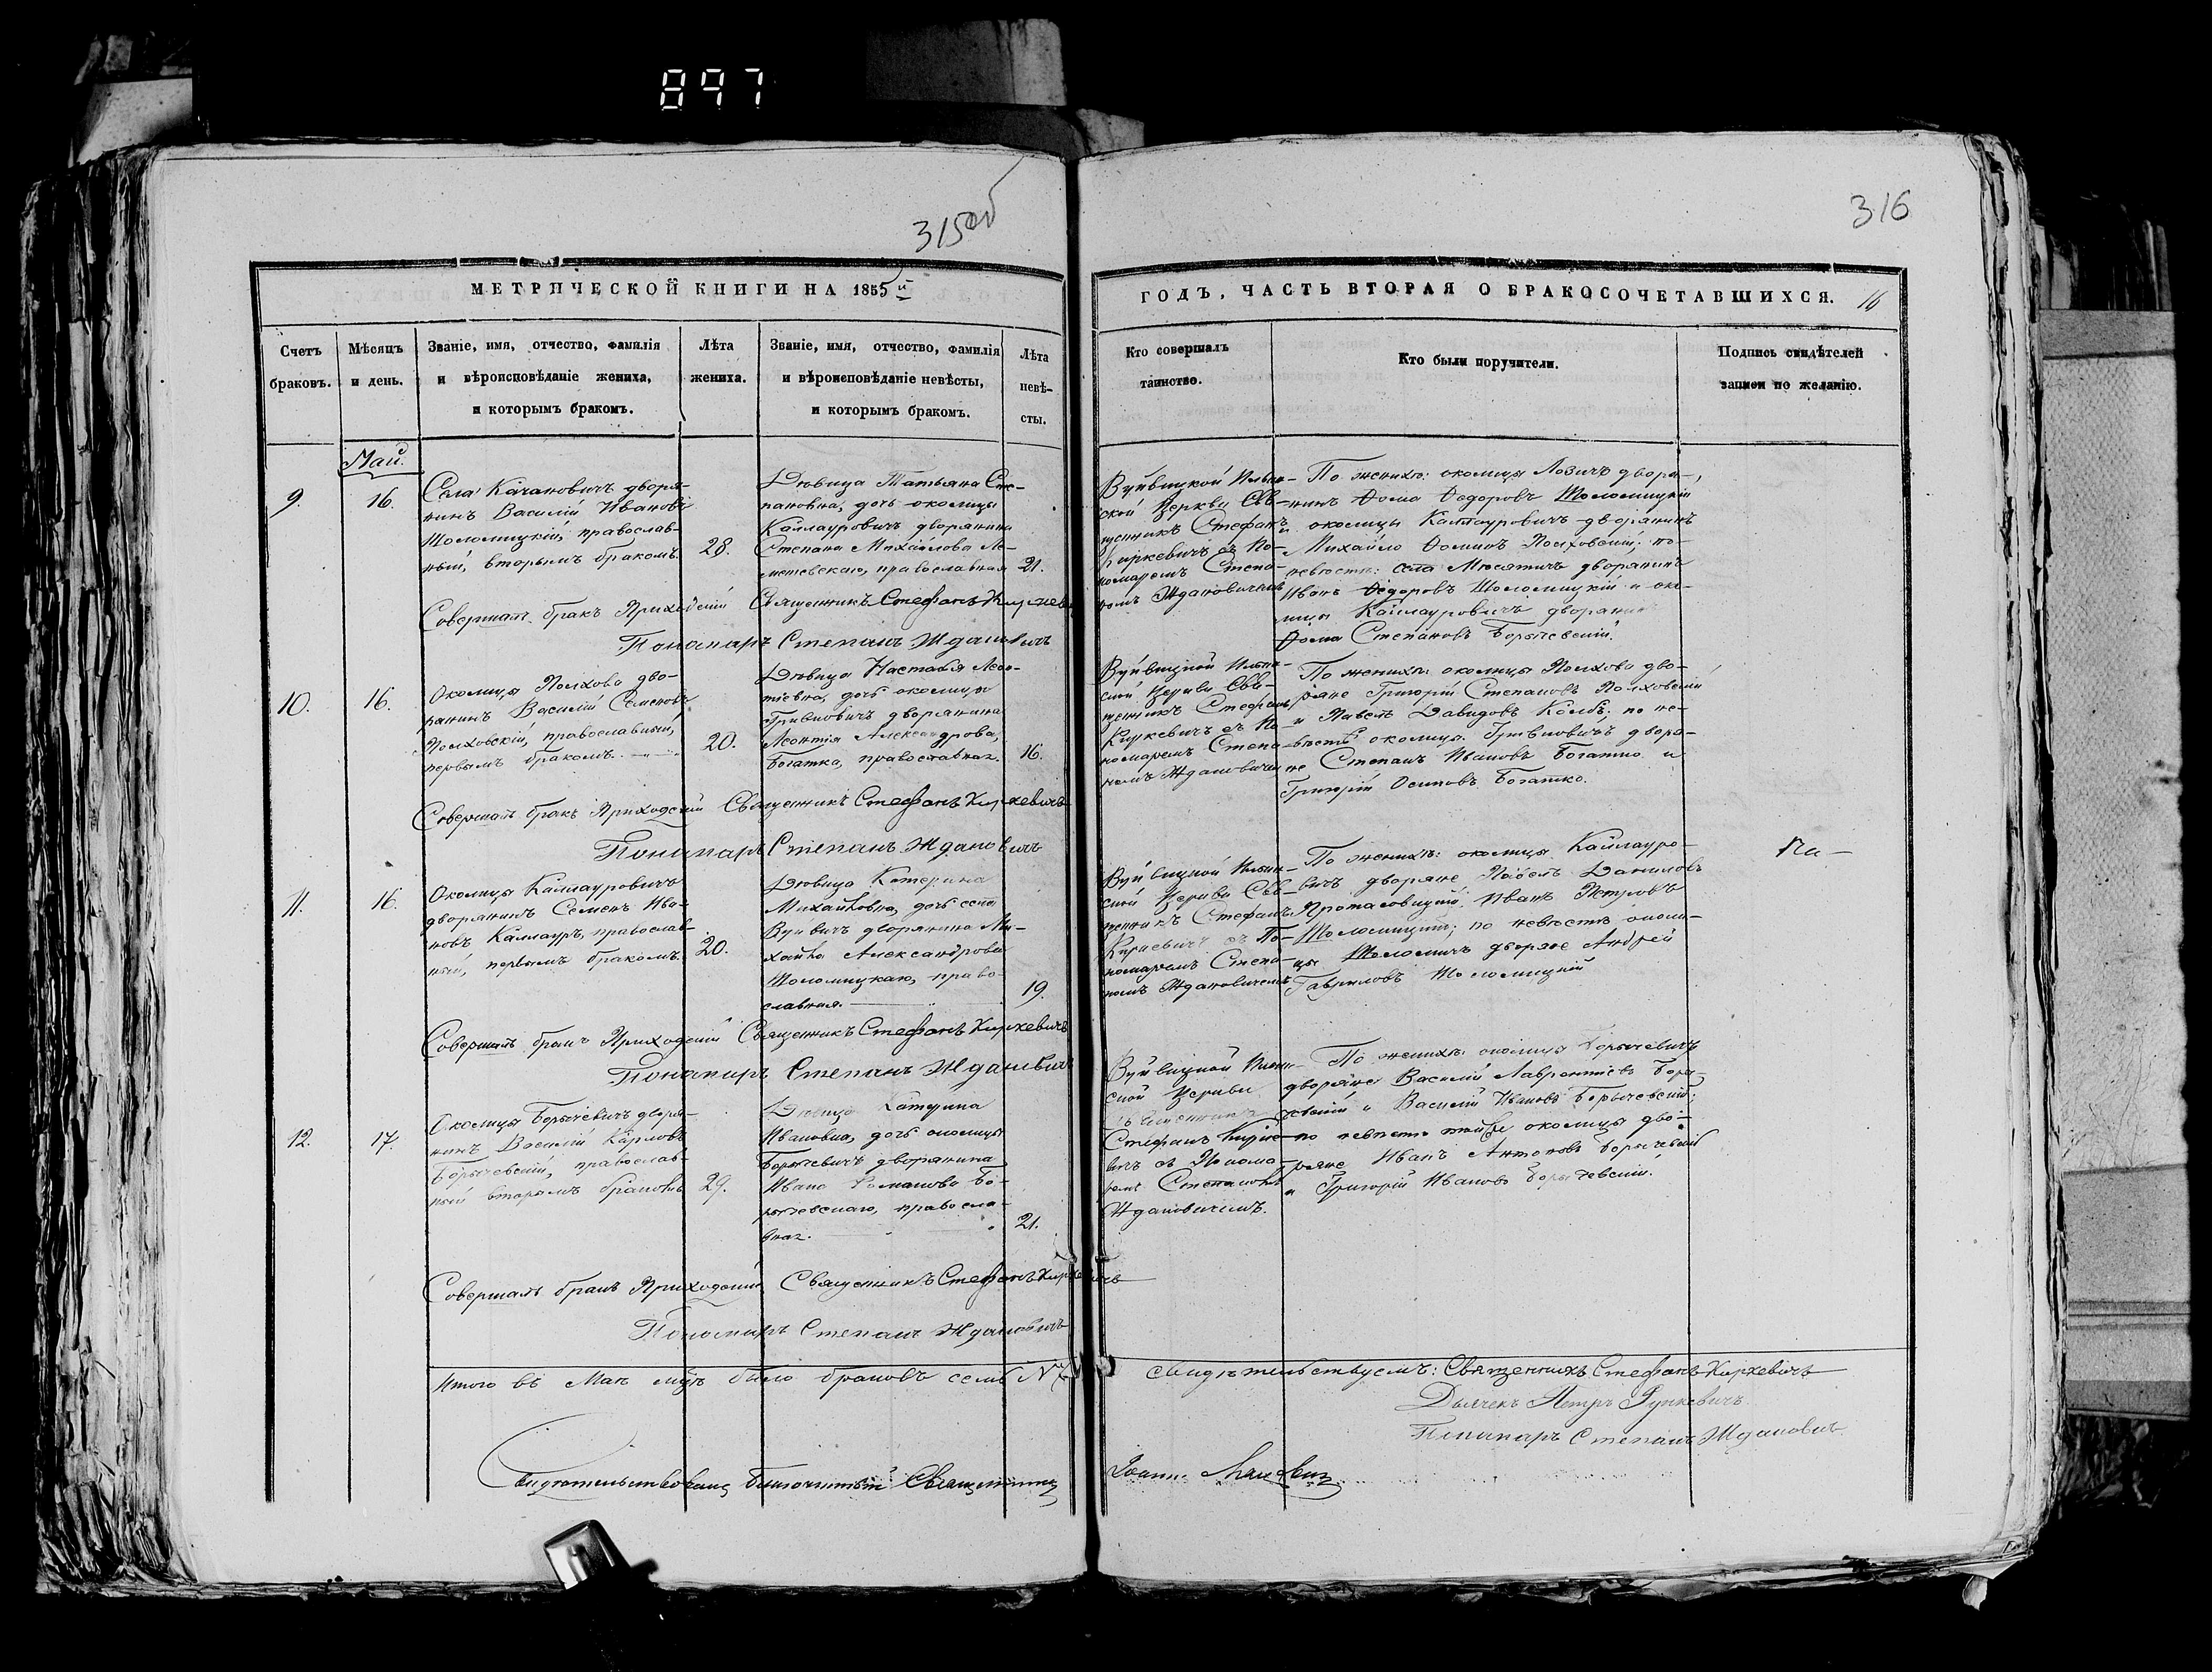 897
315об
316
МЕТРИЧЕСКОЙ КНИГИ НА 1855й
Счетъ браковъ.
Мѣсяцъ и день.
Званіе, имя, отчество, фамилія и вѣроисповѣданіе жениха, и которымъ бракомъ.
Лѣта жениха.
Званіе, имя, отчество, фамилія и вѣроисповѣданіе невѣсты, и которымъ бракомъ.
Лѣта невѣсты.
ГОДЪ, ЧАСТЬ ВТОРАЯ О БРАКОСОЧЕТАВШИХСЯ. 16
Кто совершалъ таинство.
Кто были поручители.
Подпись свидѣтелей записи по желанію.
Май.
9.
16.
Села Качановичъ дворя-
нинъ Василій Ивановъ
Шоломицкій, православ-
ный, вторымъ бракомъ.
28.
Дѣвица Татьяна Сте-
пановна, дочь околицы
Каллауровичъ дворянина
Степана Михайлова
православная
21.
Вуйвицкой Ильин-
ской Церкви Свя-
щенникъ Стефанъ
Киркевичъ съ По-
номаремъ Степа-
номъ Ждановичемъ
По женихѣ: околицы Лозичъ дворя-
нинъ Ѳома Ѳедоровъ Шоломицкій
и околицы Каллауровичъ дворянинъ
Михайло Ѳоминъ Полховскій; по
невѣстѣ: села Мѣсятичъ дворянинъ
Иванъ Ѳедоровъ Шоломицкій и око-
лицы Каллауровичъ дворянинъ
Ѳома Степановъ Борычевскій.
Совершалъ бракъ Приходскій Священникъ Стефанъ Киркевичъ
Пономаръ Степанъ Ждановичъ
10.
16.
Околицы Полхова дво-
рянинъ Василій Семеновъ
Полховскій, православный,
первымъ бракомъ.
20.
Дѣвица Настасія Леон-
тіевна, дочь околицы
Гривковичъ дворянина
Леонтія Александрова
Богатка, православная.
16.
Вуйвицкой Ильин-
ской Церкви Свя-
щенникъ Стефанъ
Киркевичъ съ По-
номаремъ Степа-
номъ Ждановичемъ
По женихѣ: околицы Полхова дво-
ряне Григорій Степановъ Полховскій
и Павелъ Давидовъ Колбъ; по не-
вѣстѣ околицы Гривковичъ дворя-
не Степанъ Ивановъ Богатко и
Григорій Осиповъ Богатко.
Совершалъ бракъ Приходскій Священникъ Стефанъ Киркевичъ
Пономаръ Степанъ Ждановичъ
11.
16.
Околицы Каллауровичъ
дворянинъ Семенъ Ива-
новъ Каллауръ, православ-
ный, первымъ бракомъ.
20.
Дѣвица Катерина
Михайловна, дочь села
Вуйвичъ дворянина Ми-
хайла Александрова
Шоломицкаго, право-
славная.
19.
Вуйвицкой Ильин-
ской Церкви Свя-
щенникъ Стефанъ
Киркевичъ съ По-
номаремъ Степа-
номъ Ждановичемъ
По женихѣ: околицы Каллауро-
вичъ дворяне Павелъ Даниловъ
Протасовицкій, Иванъ Петровъ
Шоломицкій; по невѣстѣ околи-
цы Шоломичъ дворяне Андрей
Гавриловъ Шоломицкій
На-
Совершалъ бракъ Приходскій Священникъ Стефанъ Киркевичъ
Пономаръ Степанъ Ждановичъ
12.
17.
Околицы Борычевичъ дворя-
нинъ Василій Карловъ
Борычевскій, православ-
ный вторымъ бракомъ
29.
Дѣвица Катерина
Ивановна, дочь околицы
Борычевичъ дворянина
Ивана Романова Бо-
рычевскаго, православ-
ная.
21.
Вуйвицкой Ильин-
ской Церкви
Священникъ
Стефанъ Кирке-
вичъ съ Понома-
ремъ Степаномъ
Ждановичемъ.
По женихѣ: околицы Борычевичъ
дворяне Василій Лаврентіевъ Боры-
чевскій и Василій Ивановъ Борычевскій;
по невѣстѣ той же околицы дво-
ряне Иванъ Антоновъ Борычевскій
и Григорій Ивановъ Борычевскій.
Совершалъ бракъ Приходскій Священникъ Стефанъ Киркевичъ
Пономаръ Степанъ Ждановичъ
Итого въ Маѣ м-цѣ было браковъ семь N 7
свидѣтельствуемъ: Священникъ Стефанъ Киркевичъ
Дьячекъ Петръ
Пономаръ Степанъ Ждановичъ
Свидѣтельствовалъ Благочинный Священникъ
Іоаннъ